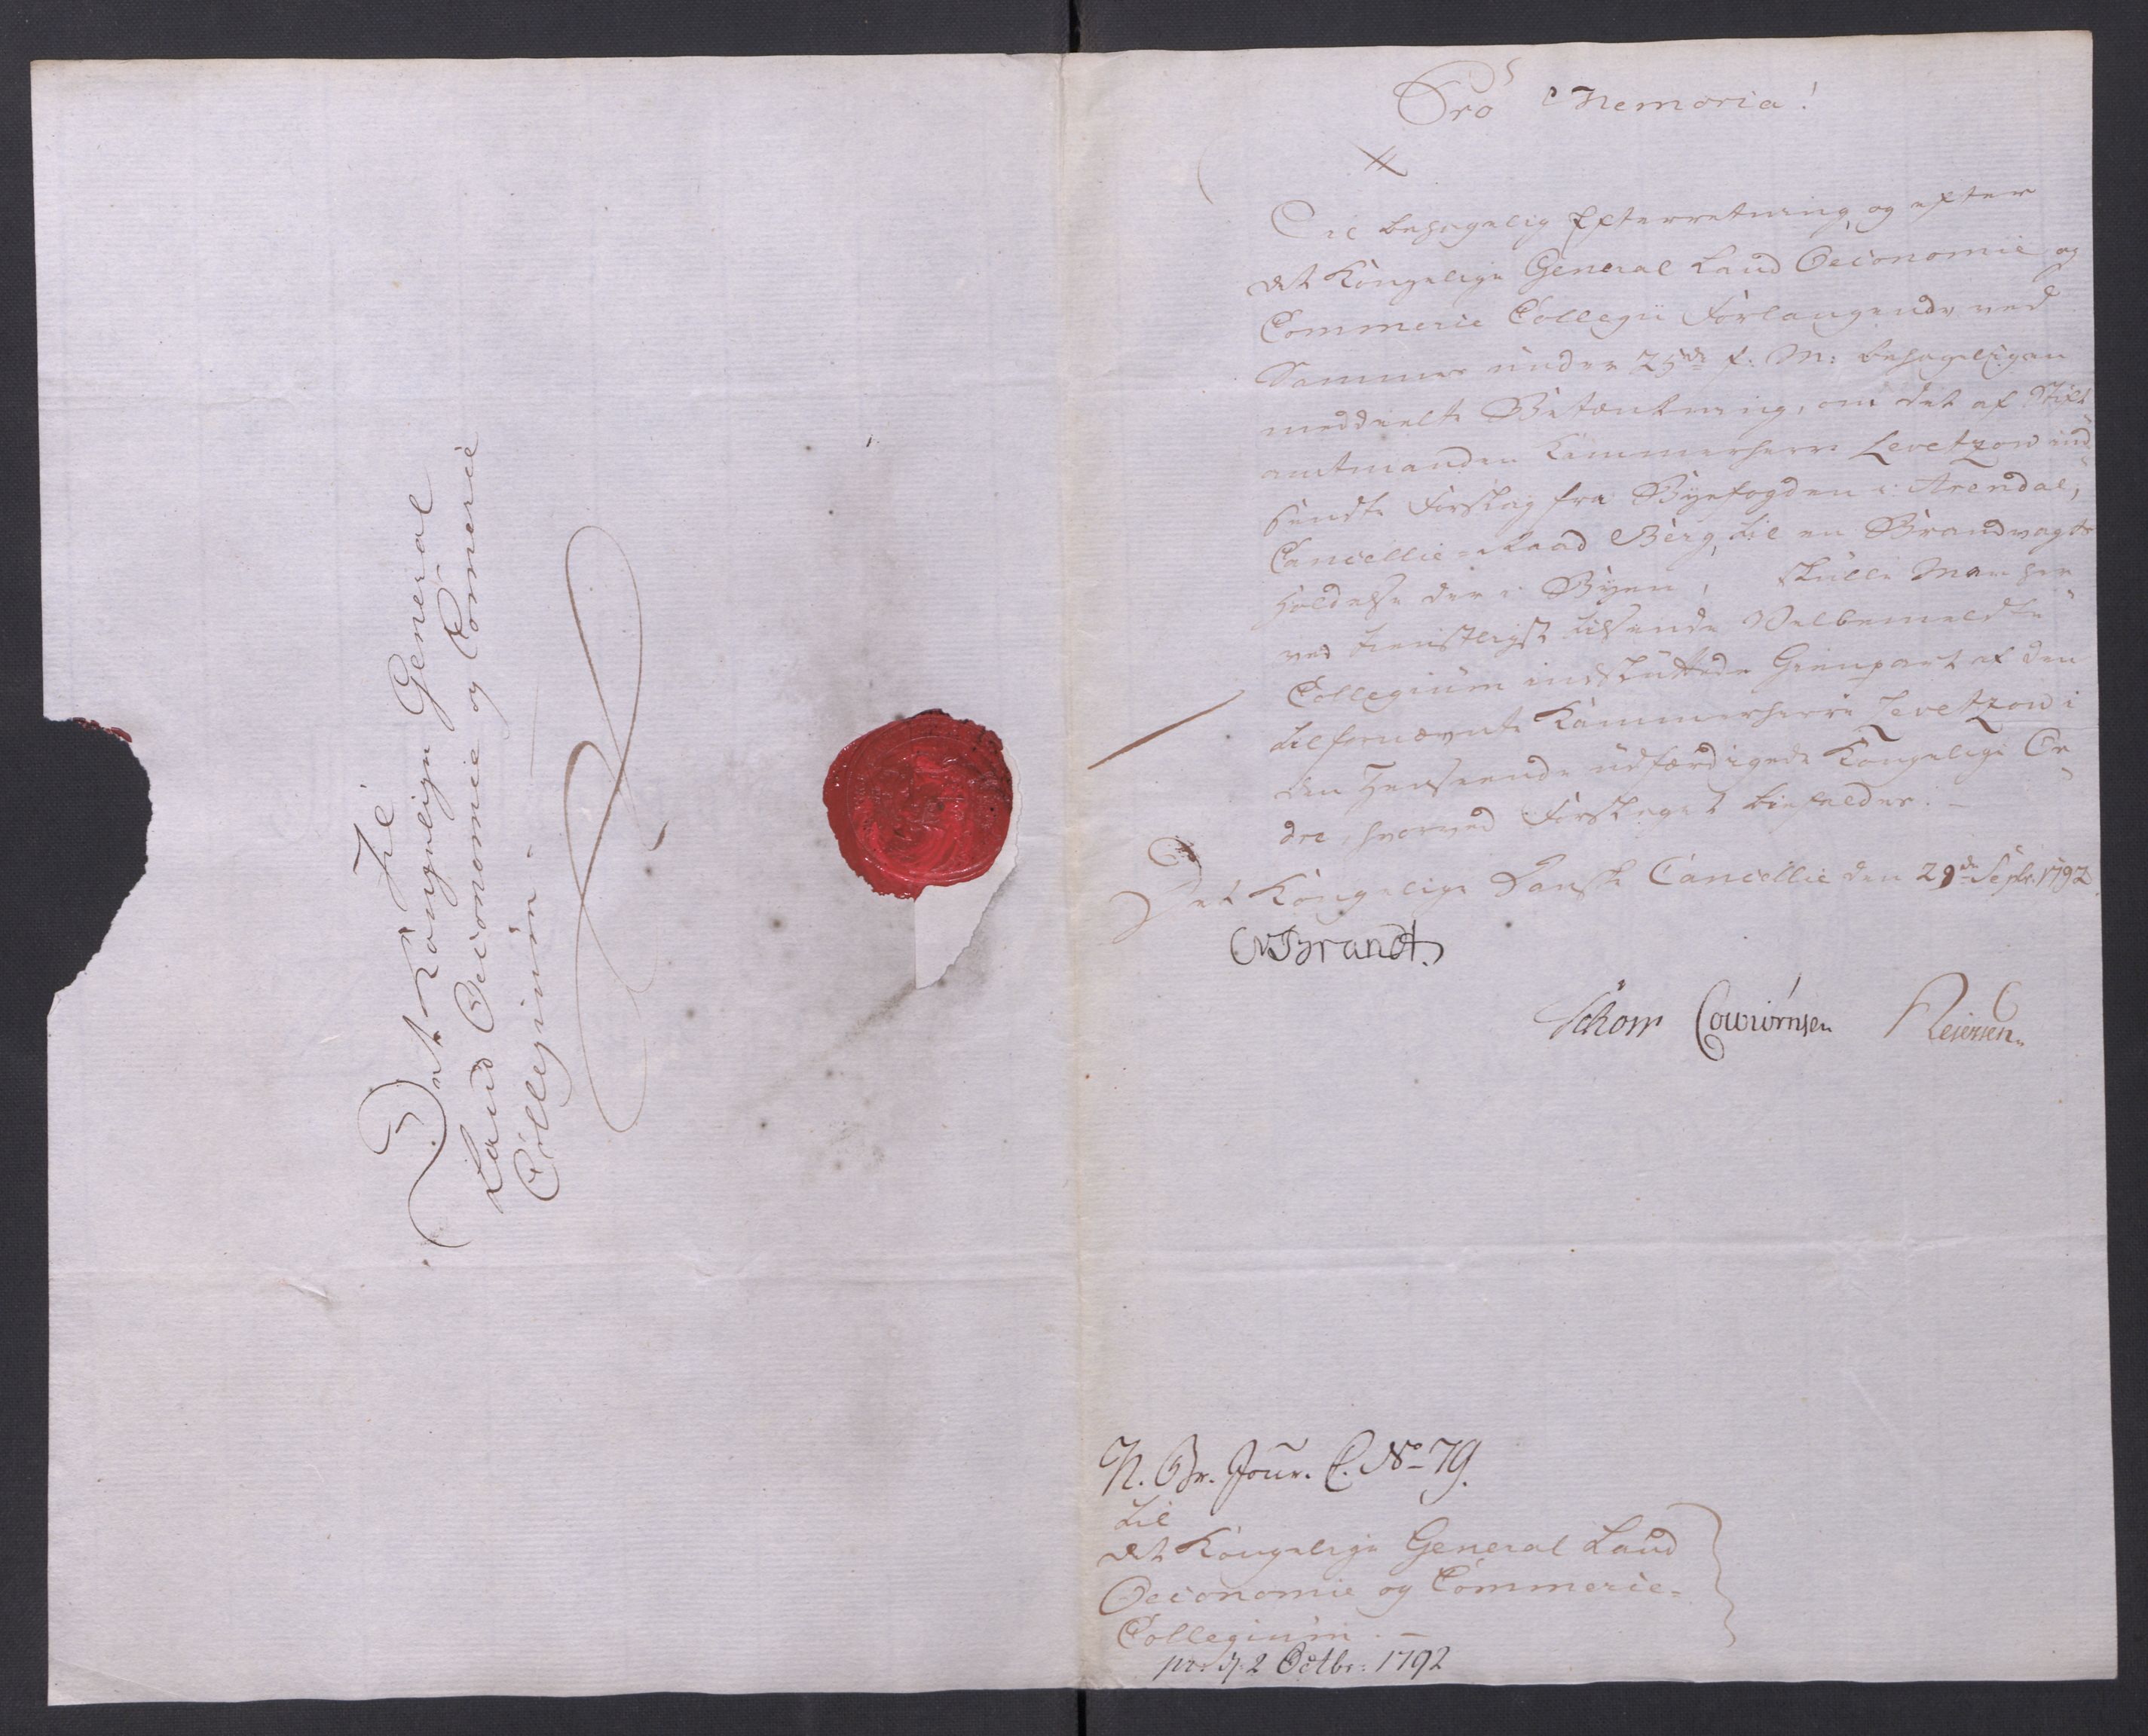 Til
Det Kongelige General
Land Oeconomie og Com̄ercie
Collegium.
Pro Memoria!
Til behagelig Efterretning, og efter
det Kongelige General Land Oeconomie og
Commercie Collegii Forlangende ved
Sammes under 25de f: M: behageligen
meddeelte Betænkning, om det af Stift
amtmanden Kammerherre Levetzow ind
sendte Forslag fra Byefogden i Arendal,
Cancellie-Raad Berg, til en Brandvagts
Holdelse der i Byen, skulle Man her
ved tienstligst tilsende Velbemeldte
Collegium indsluttede Gienpart af den
til fornævnte Kammerherre Levetzow i
den Henseende udfærdigede Kongelige Or
dre, hvorved Forslaget biefaldes. –
Det Kongelige Danske Cancellie den 29de Septr. 1792
Brandt.
Schow Cowiørnsen Reiersen.
N. Br. Jour. C. No 79.
til
det Kongelige General Land
Oeconomie og Commercie-
Collegium. –
pr. d. 2 Octbr: 1792